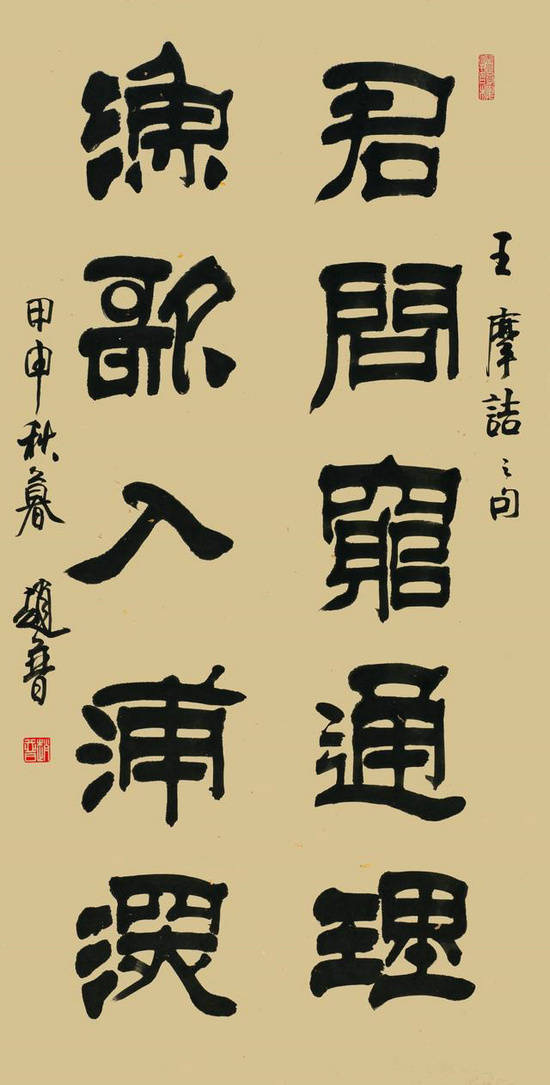 王摩詰之句
君問窮通理
漁歌入浦深
甲申秋暮 趙普